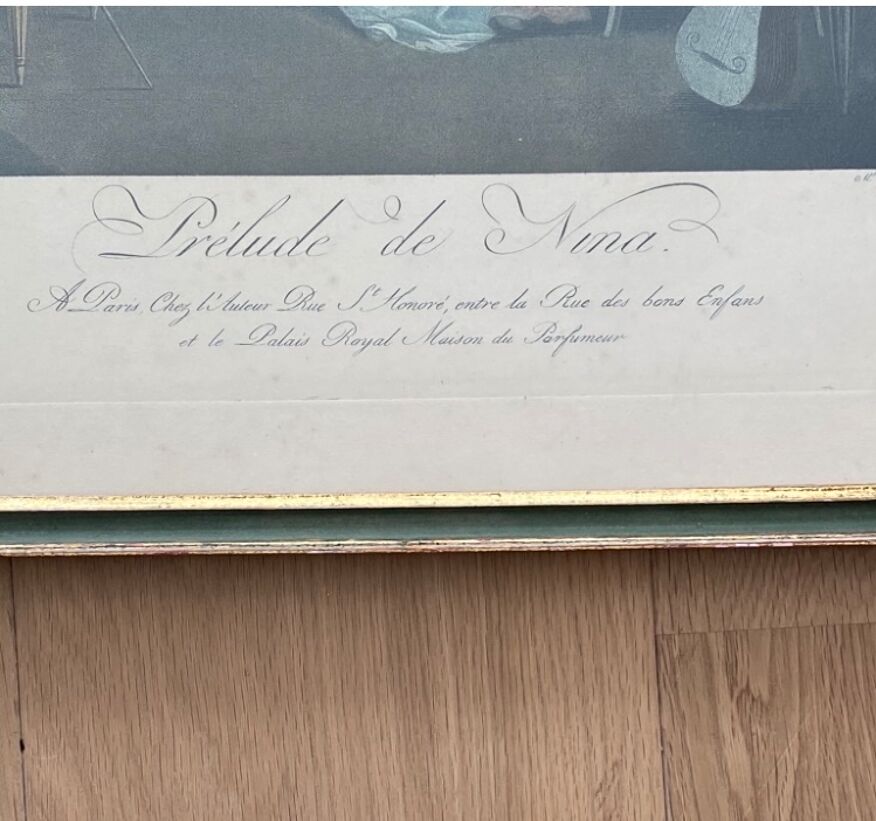 Prélude de Nina.
A Paris, Chez l'Auteur Rue St. Honoré, entre la Rue des bons Enfans
et le Palais Royal Maison du Parfumeur